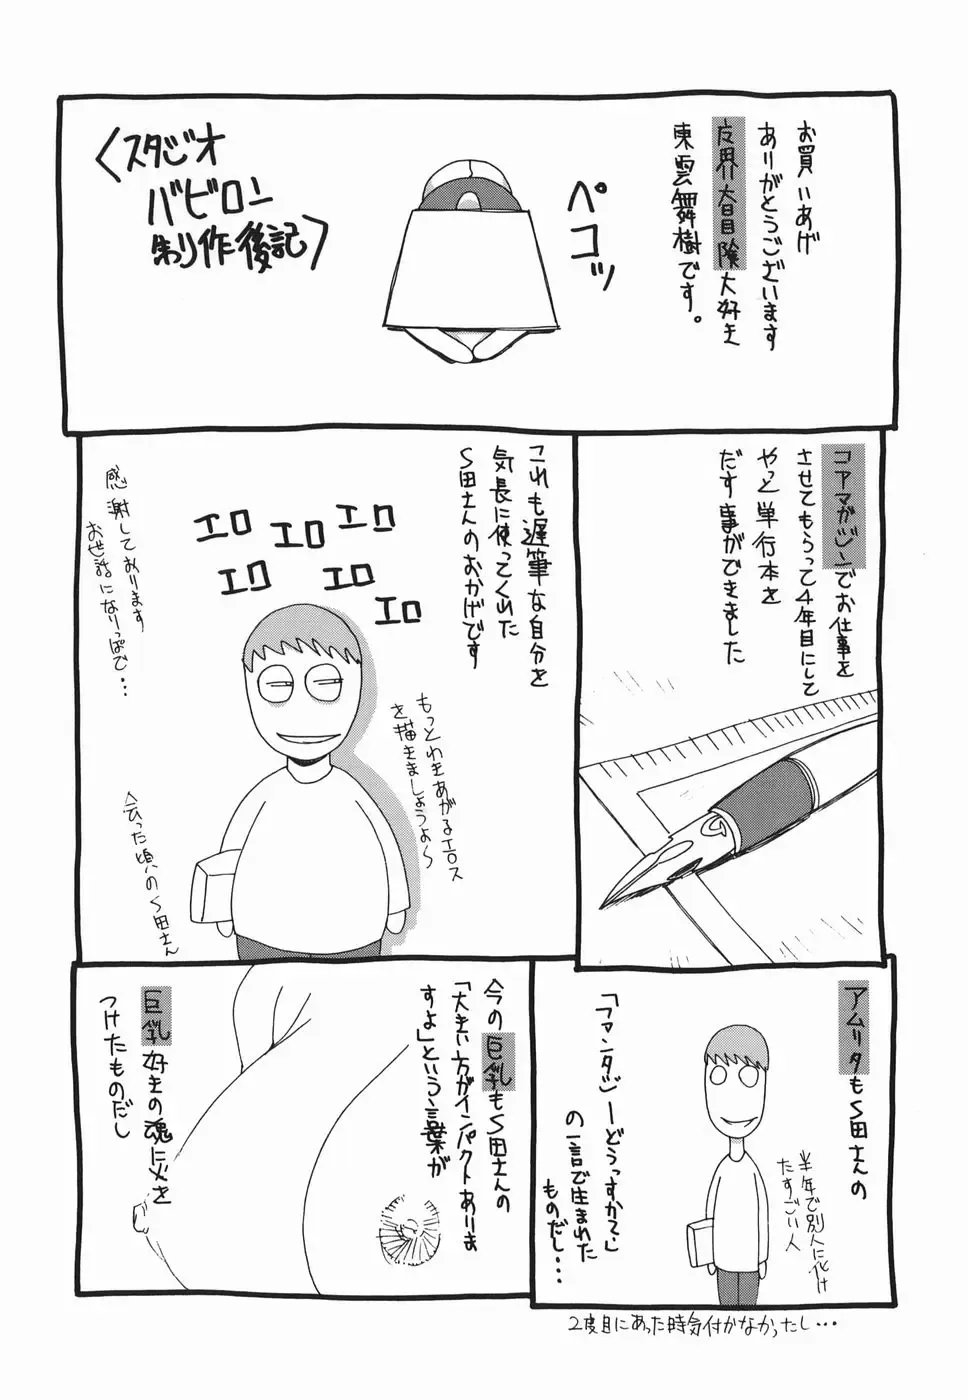 お買いあげ
ありがとうございます
友界大冒険大好き
東雲舞樹です。
ペコッ
〈スタジオ
バビロン
制作後記〉
コアマガジンでお仕事を
させてもらって4年目にして
やっと単行本を
だす事ができました
これも遅筆な自分を
気長に使ってくれた
S田さんのおかげです
エロ
エロ
エロ
エロ
エロ
エロ
もっとわきあがるエロス
を描きましょうよ〜
感謝しております
お世話になりっぱで…
会った頃のS田さん
アムリタもS田さんの
「ファンタジーどうっすかて」
の一言で生まれた
ものだし…
半年で別人に化け
たすごい人
今の巨乳もS田さんの
「大きい方がインパクトありま
すよ」という言葉が
巨乳好きの魂に火を
つけたものだし
2度目にあった時気付かなかったし…